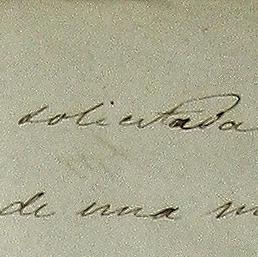 solicitada
de una